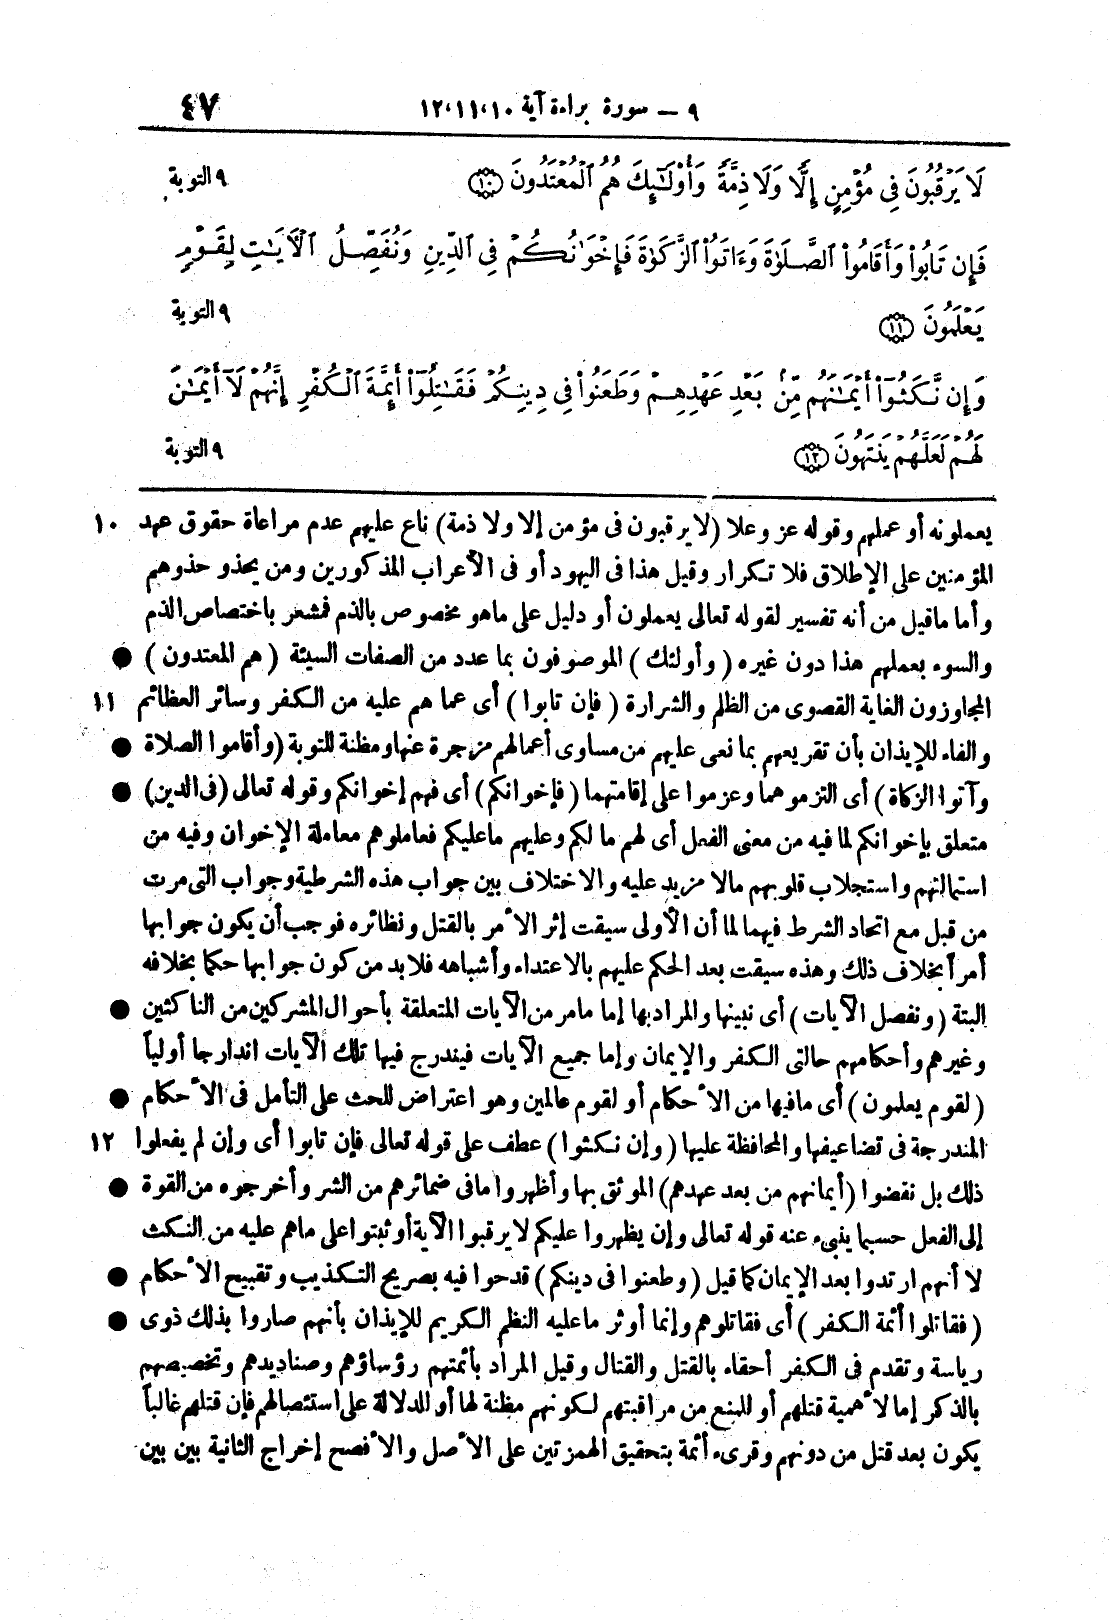 ٩ – سورة براءة آية ١٢،١١،١٠ ٤٧
لَا يَرْقُبُونَ فِى مُؤْمِنٍ إِلًّا وَلَا ذِمَّةً وَأُوْلَٰٓئِكَ هُمُ ٱلْمُعْتَدُونَ ١٠ ٩ التوبة
فَإِن تَابُواْ وَأَقَامُواْ ٱلصَّلَوٰةَ وَءَاتَوُاْ ٱلزَّكَوٰةَ فَإِخْوَٰنُكُمْ فِى ٱلدِّينِ وَنُفَصِّلُ ٱلْأٓيَٰتِ لِقَوْمٍ
يَعْلَمُونَ ١١ ٩ التوبة
وَإِن نَّكَثُوٓاْ أَيْمَٰنَهُم مِّنۢ بَعْدِ عَهْدِهِمْ وَطَعَنُواْ فِى دِينِكُمْ فَقَٰتِلُوٓاْ أَئِمَّةَ ٱلْكُفْرِ إِنَّهُمْ لَآ أَيْمَٰنَ
لَهُمْ لَعَلَّهُمْ يَنتَهُونَ ١٢ ٩ التوبة
يعملونه أو عملهم وقوله عز وعلا (لا يرقبون فى مؤمن إلا ولا ذمة) ناع عليهم عدم مراعاة حقوق عهد ١٠
المؤمنين على الإطلاق فلا تكرار وقيل هذا فى اليهود أو فى الأعراب المذكورين ومن يحذو حذوهم
وأما ماقيل من أنه تفسير لقوله تعالى يعملون أو دليل على ماهو مخصوص بالذم فمشعر باختصاص الذم
والسوء بعملهم هذا دون غيره (وأولئك) الموصوفون بما عدد من الصفات السيئة (هم المعتدون) ●
المجاوزون الغاية القصوى من الظلم والشرارة (فإن تابوا) أى عما هم عليه من الكفر وسائر العظائم ١١
والفاء للإيذان بأن تقريعهم بما نعى عليهم من مساوى أعمالهم مزجرة عنها ومظنة للتوبة (وأقاموا الصلاة ●
وآتوا الزكاة) أى التزموهما وعزموا على إقامتهما (فإخوانكم) أى فهم إخوانكم وقوله تعالى (فى الدين) ●
متعلق بإخوانكم لما فيه من معنى الفعل أى لهم ما لكم وعليهم ماعليكم فعاملوهم معاملة الإخوان وفيه من
استمالتهم واستجلاب قلوبهم مالا مزيد عليه والاختلاف بين جواب هذه الشرطية وجواب التى مرت
من قبل مع اتحاد الشرط فيهما لما أن الأولى سيقت إثر الأمر بالقتل ونظائره فوجب أن يكون جوابها
أمراً بخلاف ذلك وهذه سيقت بعد الحكم عليهم بالاعتداء وأشباهه فلابد من كون جوابها حكما بخلافه
البتة (ونفصل الآيات) أى نبينها والمراد بها إما مامر من الآيات المتعلقة بأحوال المشركين من الناكثين ●
وغيرهم وأحكامهم حالتى الكفر والإيمان وإما جميع الآيات فيندرج فيها تلك الآيات اندارجا أولياً
(لقوم يعلمون) أى مافيها من الأحكام أو لقوم عالمين وهو اعتراض للحث على التأمل فى الأحكام ●
المندرجة فى تضاعيفها والمحافظة عليها (وإن نكثوا) عطف على قوله تعالى فإن تابوا أى وإن لم يفعلوا ١٢
ذلك بل نقضوا (أيمانهم من بعد عهدهم) الموثق بها وأظهروا مافى ضمائرهم من الشر وأخرجوه من القوة ●
إلى الفعل حسبما ينبىء عنه قوله تعالى وإن يظهروا عليكم لا يرقبوا الآية أو ثبتوا على ماهم عليه من النكث
لا أنهم ارتدوا بعد الإيمان كما قيل (وطعنوا فى دينكم) قدحوا فيه بصريح التكذيب وتقبيح الأحكام ●
(فقاتلوا أئمة الكفر) أى فقاتلوهم وإنما أوثر ماعليه النظم الكريم للإيذان بأنهم صاروا بذلك ذوى ●
رياسة وتقدم فى الكفر أحقاء بالقتل والقتال وقيل المراد بأئمتهم رؤساؤهم وصناديدهم وتخصيصهم
بالذكر إما لأهمية قتلهم أو للمنع من مراقبتهم لكونهم مظنة لها أو للدلالة على استئصالهم فإن قتلهم غالباً
يكون بعد قتل من دونهم وقرىء أئمة بتحقيق الهمزتين على الأصل والأفصح إخراج الثانية بين بين